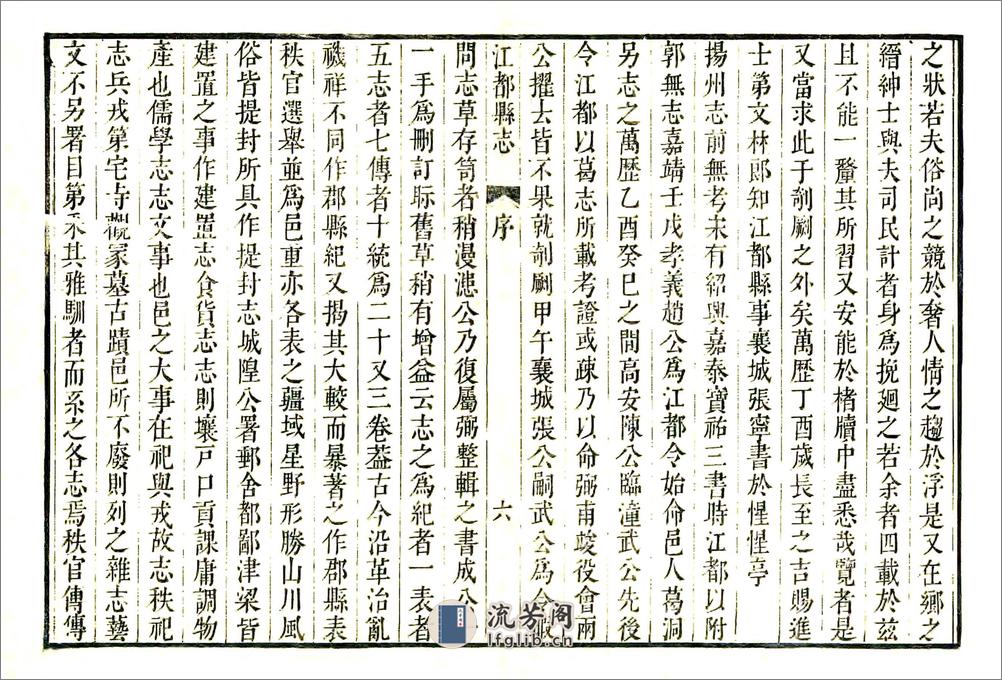 之狀若夫俗尚之競於奢人情之趨於浮是又在鄉之
縉紳士與夫司民計者身為挽廻之若余者四載於兹
且不能一釐其所習又安能於楮牘中盡悉哉覽者是
又當求此于剞劂之外矣萬歷丁酉歲長至之吉賜進
士第文林郎知江都縣事襄城張寧書於惺惺亭
揚州志前無考未有紹興嘉泰寶祐三書時江都以附
郭無志嘉靖壬戌孝義趙公為江都令始侖邑人葛洞
另志之萬歷乙酉癸巳之間高安陳公臨潼武公先後
令江都以葛志所載考證或疎乃以命弼甫竣役會兩
公擢去皆不果就剞劂甲午襄城張公嗣武公為令
江都縣志
序
六
問志草存笥者稍漫漶公乃復屬弼整輯之書成公
一手為刪訂眎舊草稍有增益云志之為紀者一表者
五志者七傳者十統為二十又三卷葢古今沿革治亂
禨祥不同作郡縣紀又揭其大較而暴著之作郡縣表
秩官選舉並為邑重亦各表之疆域星野形勝山川風
俗皆提封所具作提封志城隍公署郵舍都鄙津梁皆
建置之事作建置志食貨志志則壤戸口貢課庸調物
產也儒學志志文事也邑之大事在祀與戎故志秩祀
志兵戎第宅寺觀冢墓古蹟邑所不廢則列之雜志藝
文不另署目第采其雅馴者而系之各志焉秩官傳傳
流芳阁
lfglib.cn